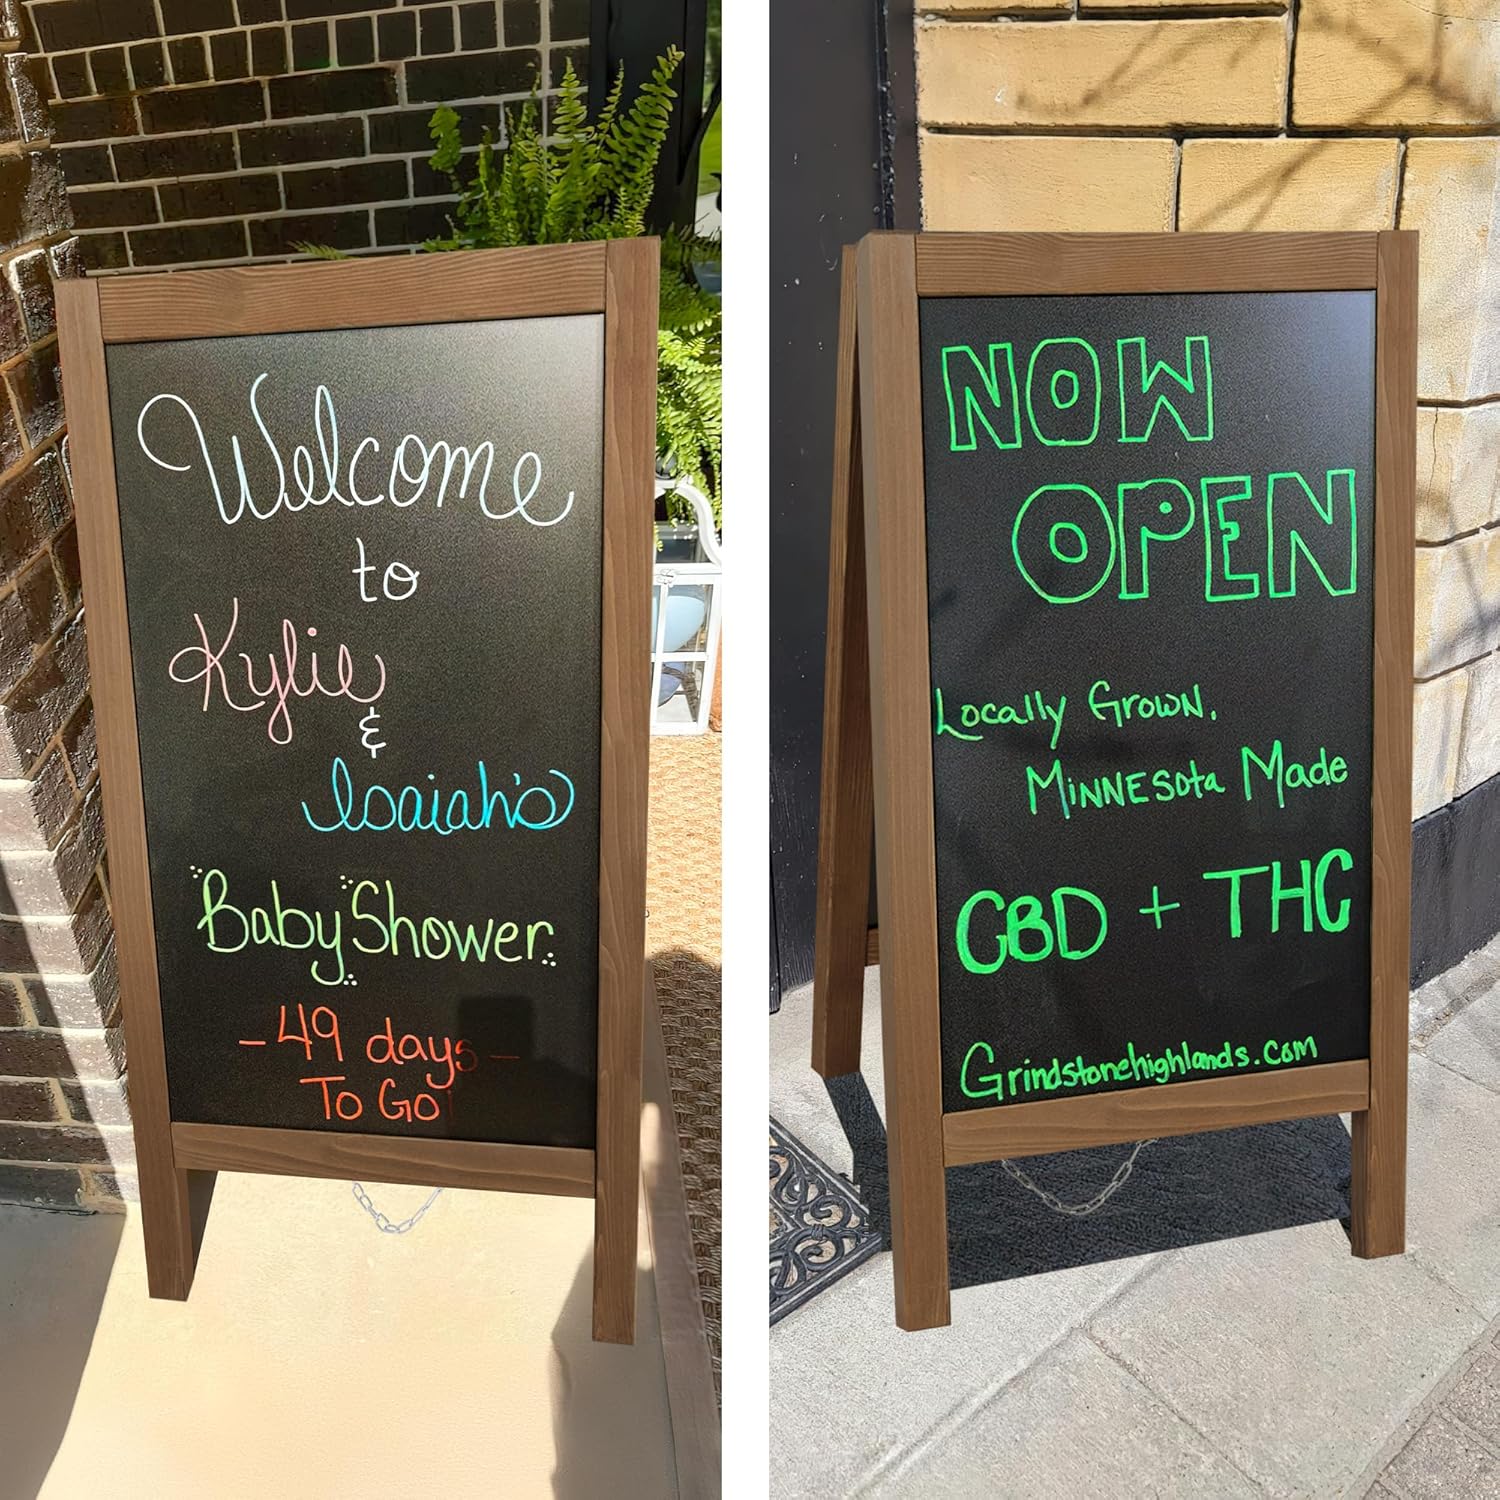 Welcome
to
Kylie
&
Isaiah's
Baby Shower
- 49 days -
To Go
NOW
OPEN
Locally Grown,
Minnesota Made
CBD + THC
Grindstonehighlands.com